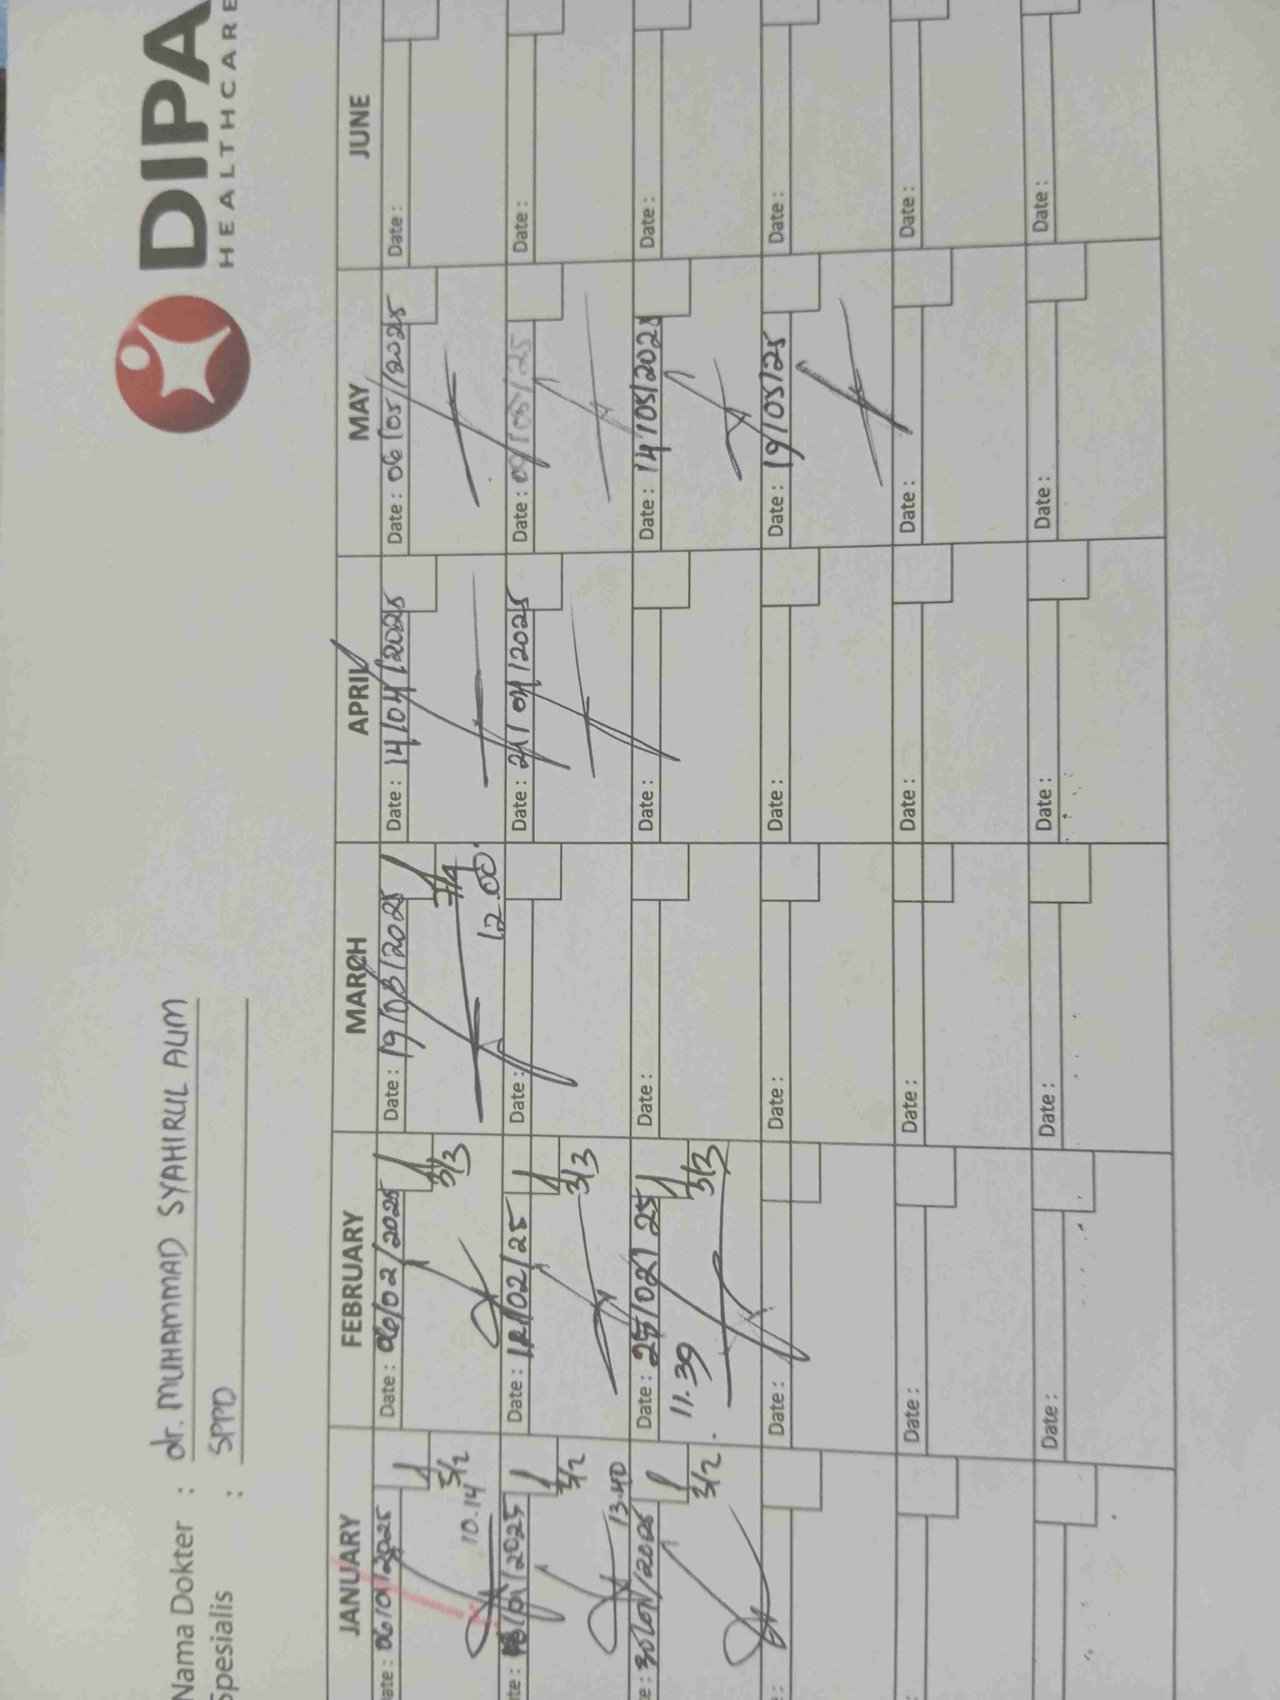 DIPA
HEALTHCARE
Nama Dokter : dr. MUHAMMAD SYAHIRUL ALIM
Spesialis : SPPD
JANUARY FEBRUARY MARCH APRIL MAY JUNE
ate : 06/01/2025 Date : 06/02/2025 Date : 19/03/2025 Date : 14/04/2025 Date : 06/05/2025 Date :
10.14 5/2 3/3 7/4 12.00
te : /01/2025 Date : 12/02/25 Date : Date : 21/04/2025 Date : 09/05/25 Date :
13.40 3/2 3/3
e : 30/01/2025 Date : 25/02/25 Date : Date : Date : 14/05/2025 Date :
3/2 11.39 3/3
: Date : Date : Date : Date : 19/05/25 Date :
: Date : Date : Date : Date : Date :
Date : Date : Date : Date : Date :